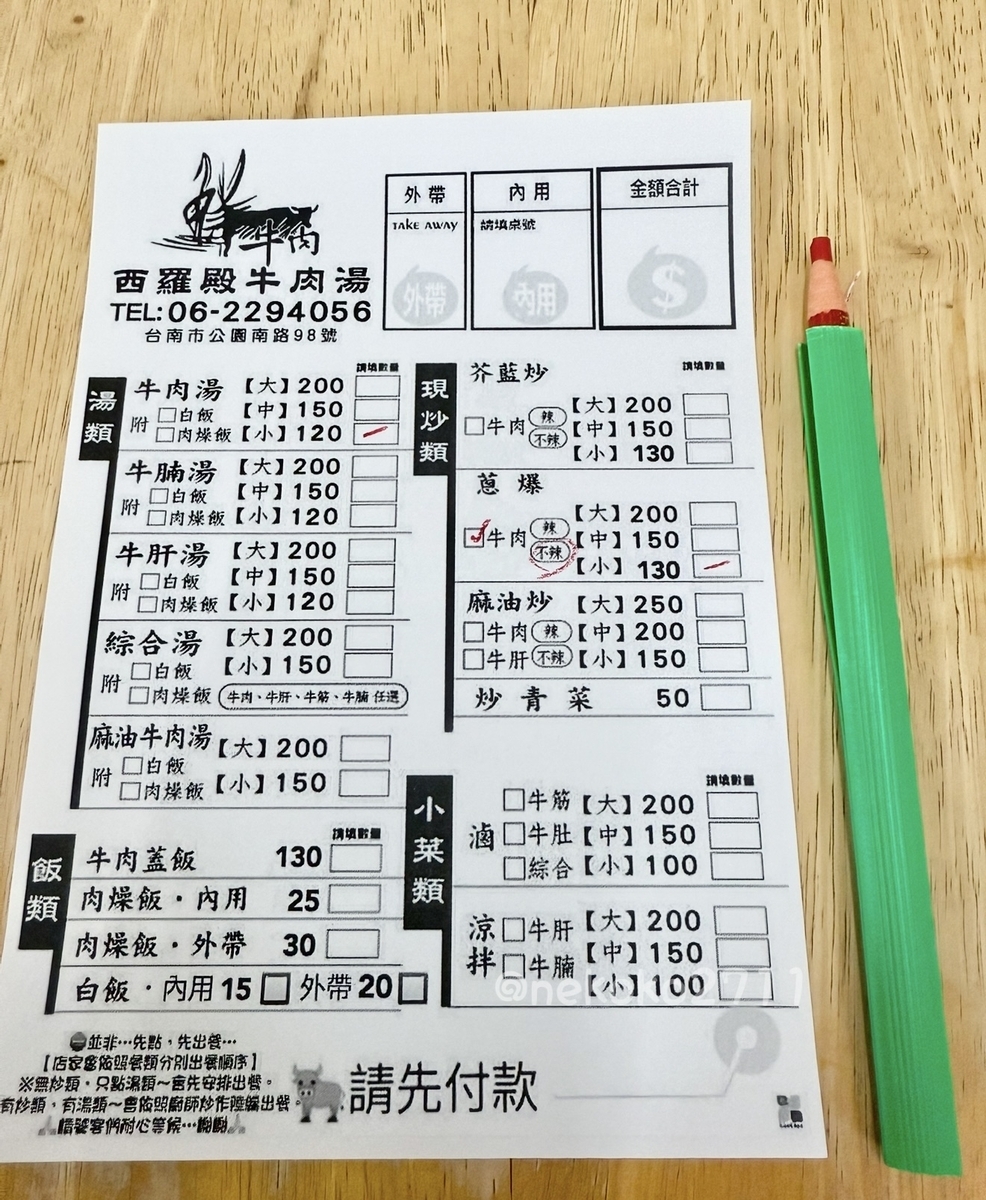 牛肉
西羅殿牛肉湯
TEL:06-2294056
台南市公園南路98號
外帶
TAKE AWAY
外帶
內用
請填桌號
內用
金額合計
$
湯類
請填數量
牛肉湯【大】200
附 □白飯【中】150
□肉燥飯【小】120
牛腩湯【大】200
附 □白飯【中】150
□肉燥飯【小】120
牛肝湯【大】200
附 □白飯【中】150
□肉燥飯【小】120
綜合湯【大】200
附 □白飯【小】150
□肉燥飯 牛肉、牛肝、牛筋、牛腩 任選
麻油牛肉湯【大】200
附 □白飯
□肉燥飯【小】150
飯類
請填數量
牛肉蓋飯 130
肉燥飯・內用 25
肉燥飯・外帶 30
白飯・內用15 □ 外帶20 □
現炒類
請填數量
芥藍炒
□牛肉 辣 不辣【大】200
【中】150
【小】130
蔥爆
□牛肉 辣 不辣【大】200
【中】150
【小】130
麻油炒【大】250
□牛肉 辣【中】200
□牛肝 不辣【小】150
炒青菜 50
小菜類
請填數量
滷 □牛筋【大】200
□牛肚【中】150
□綜合【小】100
涼拌 □牛肝【大】200
□牛腩【中】150
【小】100
並非…先點，先出餐…
【店家會依照餐類分別出餐順序】
※無炒類，只點湯類～會先安排出餐。
有炒類，有湯類～會依照廚師炒作陸續出餐。
請饕客們耐心等候…謝謝
請先付款
@nekoko2711